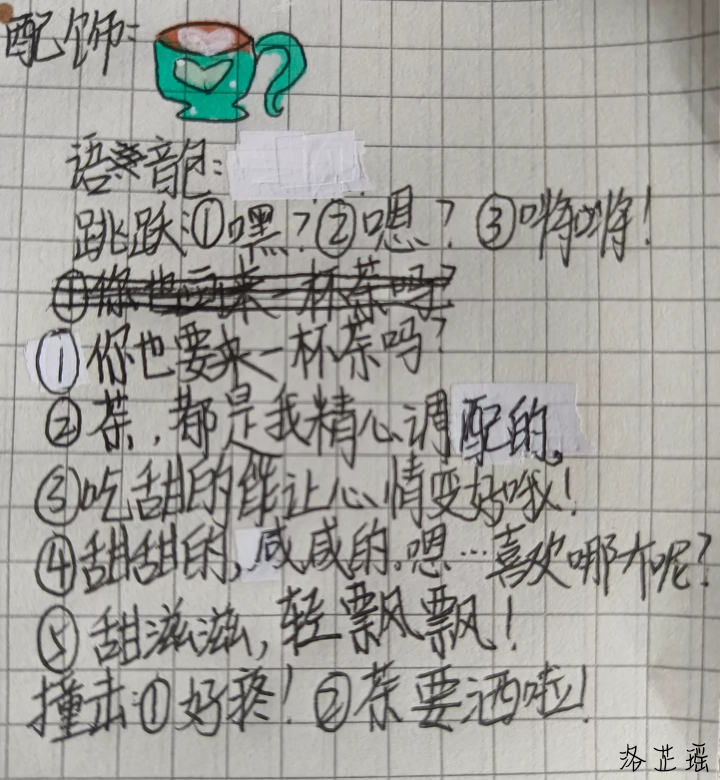 配饰:
语音包:
跳跃:①嘿?②嗯?③啊啊!
①你也要来一杯茶吗?
②茶,都是我精心调配的。
③吃甜的能让心情变好哦!
④甜甜的,咸咸的.嗯…喜欢哪个呢?
⑤甜滋滋,轻飘飘!
撞击:①好疼!②茶要洒啦!
洛芷瑶